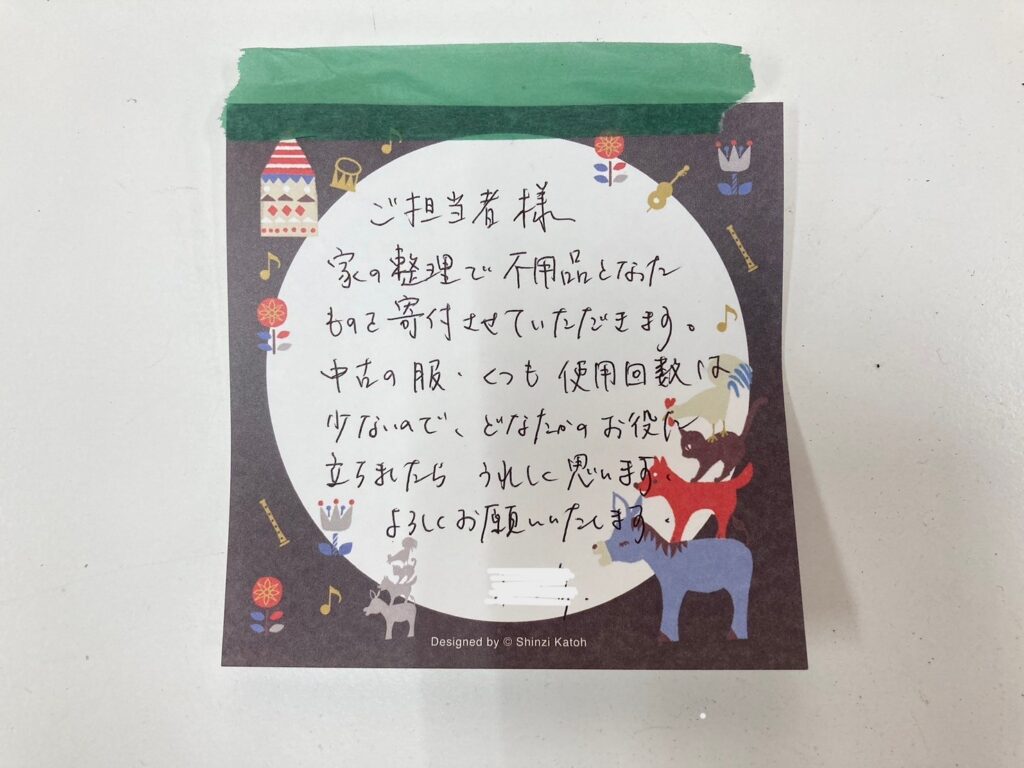 ご担当者様
家の整理で不用品となった
ものを寄付させていただきます。
中古の服・くつも使用回数は
少ないので、どなたかのお役に
立ちましたらうれしく思います。
よろしくお願いいたします
Designed by © Shinzi Katoh